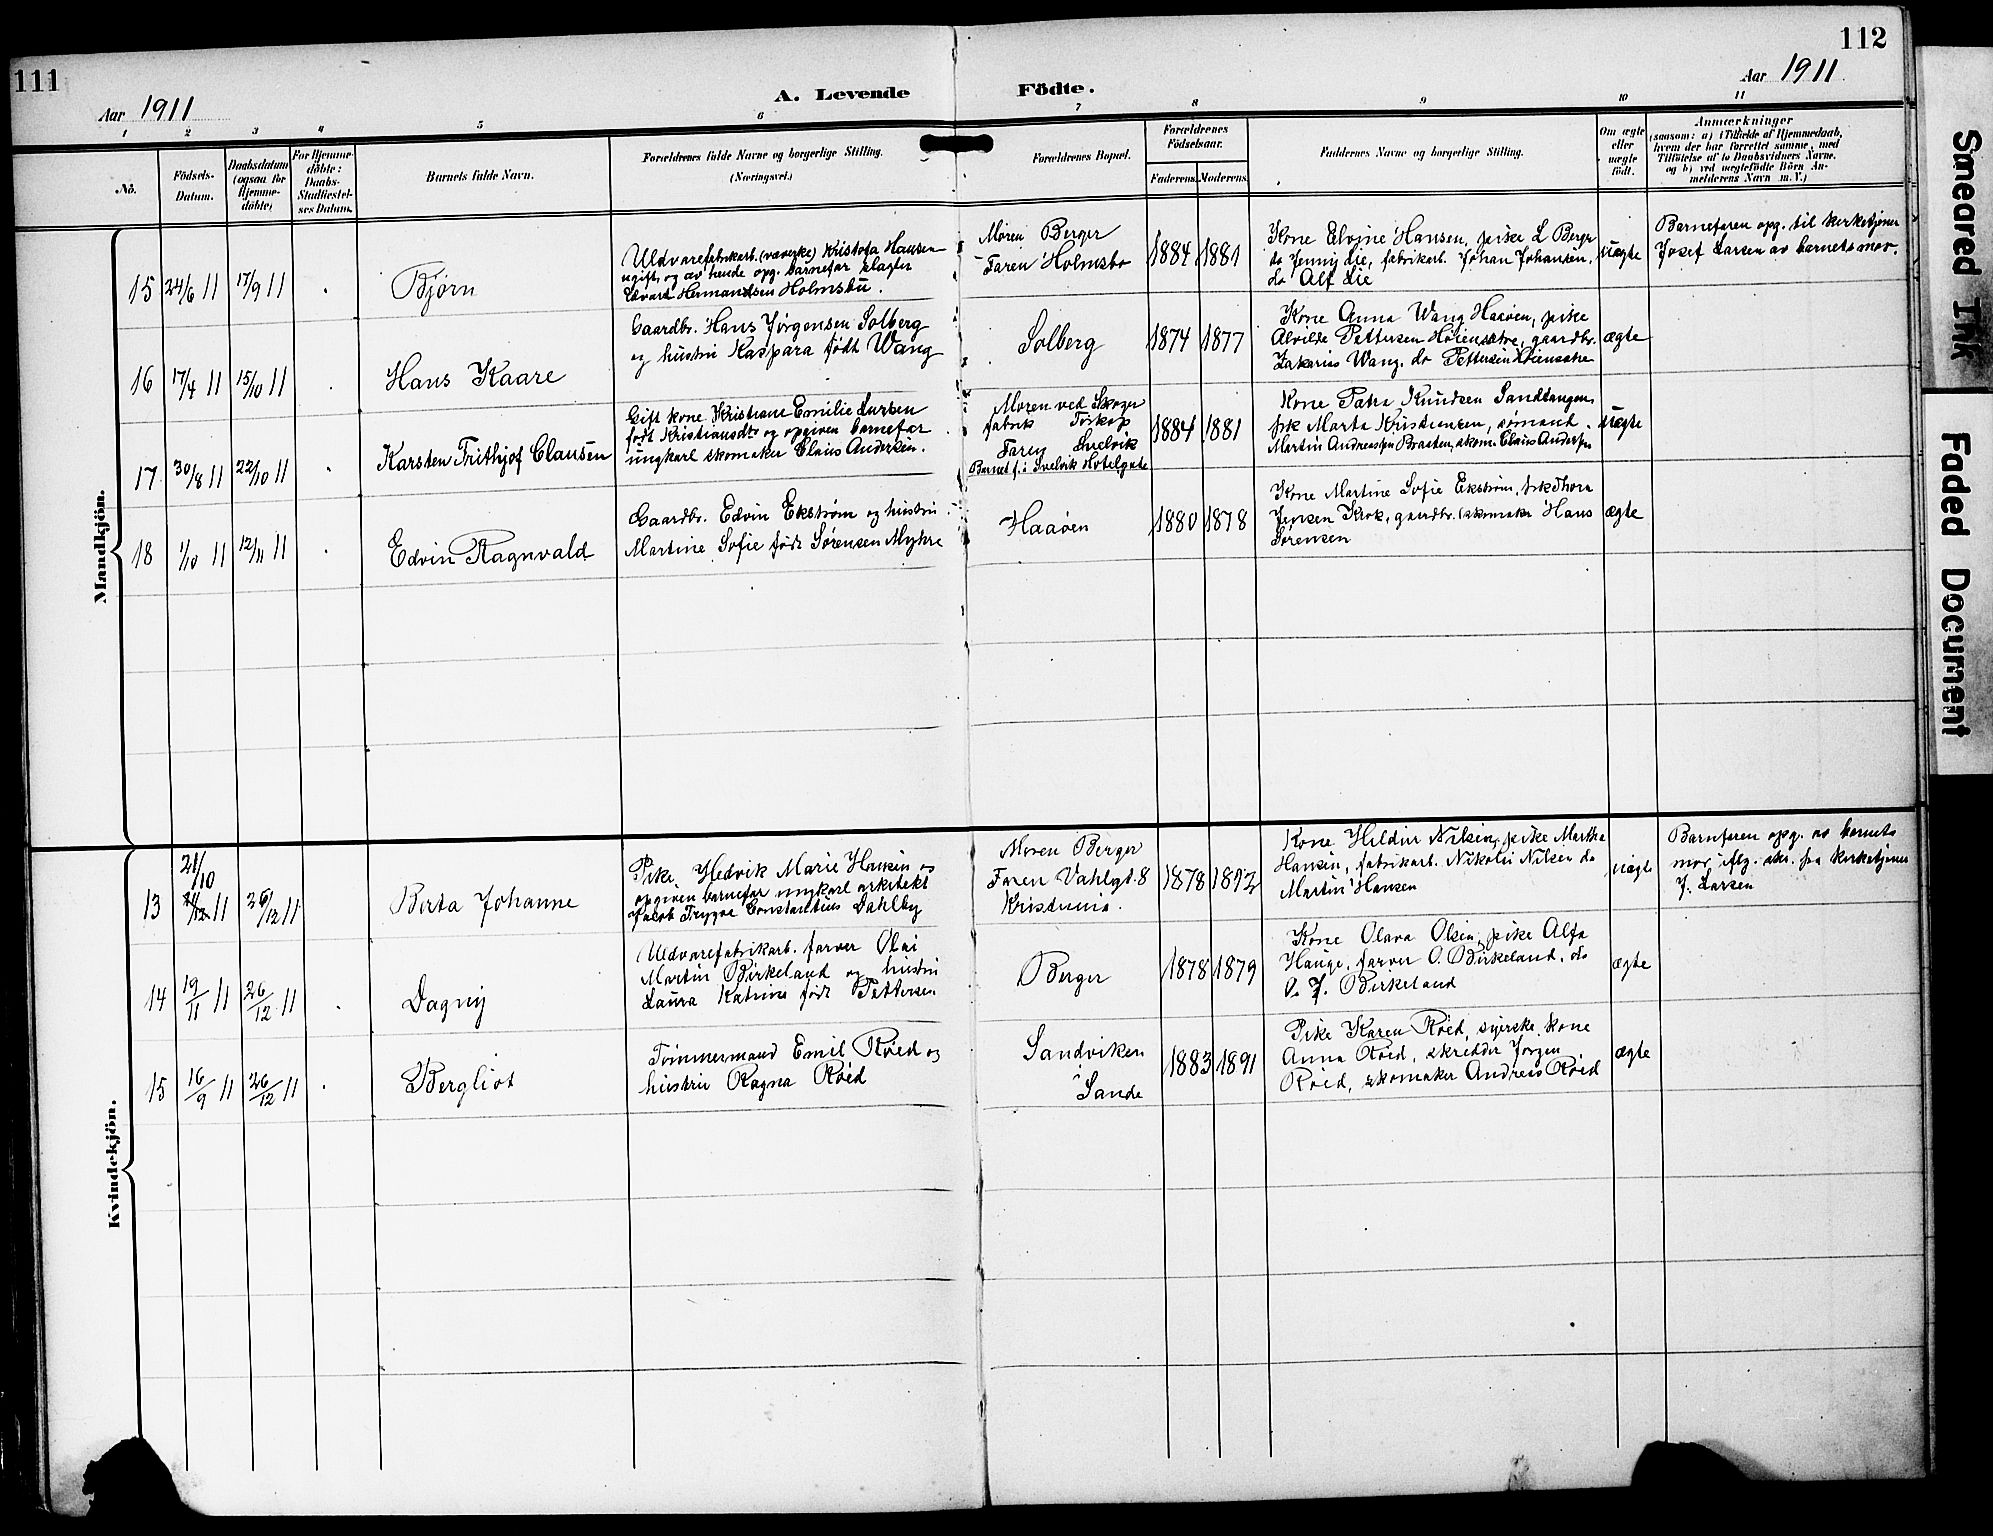 111
112
Aar 1911
A. Levende Födte.
Aar 1911.
1 2 3 4 5 6 7 8 9 10 11
No.
Födsels-
Datum.
Daabsdatum
(ogsaa for
Hjemme-
döbte)
For Hjemme-
döbte:
Daabs-
Stadfæstel-
ses Datum.
Barnets fulde Navn.
Forældrenes fulde Navne og borgerlige Stilling.
(Næringsvei.)
Forældrenes Bopæl.
Forældrenes
Födselsaar.
Faderens. Moderens.
Faddernes Navne og borgerlige Stilling.
Om ægte
eller
uægte
födt.
Anmærkninger
(saasom: a) i Tilfælde af Hjemmedaab,
hvem der har forrettet samme, med
Tilföielse af to Daabsvidners Navne,
og b) ved uægtefödte Börn An-
melderens Navn m. V.)
Mandkjön.
15 24/6 11 17/9 11 . Bjørn
Uldvarefabrikarb. (væverske) Kristofa Hansen
ugift, og av hende opg. barnefar slagter
Edvard Hermandsen Holmsbu.
Moren Berger
Faren Holmsbo
1884 1881
Kone Elvine Hansen, pike L Berger
do Jenny Lie, fabrikarb. Johan Johansen,
do Alf Lie
uægte
Barnefaren opg. til kirketjener
Josef Larsen av barnets mor.
16 17/4 11 15/10 11 . Hans Kaare
Gaardbr. Hans Jørgensen Solberg
og hustru Kaspara født Wang
Solberg
1874 1877
Kone Anna Wang Haaøen, pike
Alvilde Pettersen Høiensætre, gaardbr.
Zakarias Wang, do Pettersen Høiensætre
ægte
17 30/8 11 22/10 11 Karsten Frithjof Clausen
Gift kone Kristiane Emilie Larsen
født Kristiansdtr og opgiven barnefar
ungkarl skomaker Claus Andersen.
Moren ved Skoger
fabrik Foskop
Faren Svelvik
Barnet f. i Svelvik Hotelgate
1884 1881
Kone Petra Knudsen Sandtangen,
frk Marta Kristiansen, sømand
Martin Andreassen Braaten, skom. Claus Andersen
uægte
18 1/10 11 12/11 11 . Edvin Ragnvald
Gaardbr. Edvin Ekstrøm og hustru
Martine Sofie født Sørensen Myhre
Haaøen
1880 1878
Kone Martine Sofie Ekstrøm, frk Thora
Jensen Krok, gaardbr. skomaker Hans
Sørensen
ægte
Kvindekjön.
13 21/10 11 26/12 11 Berta Johanne
Pike Hedvik Marie Hansen og
opgiven barnefar ungkarl arkitekt
Jacob Trygve Constantius Dahlby
Moren Berger
Faren Vahlgt. 8
Kristiania.
1878 1892
Kone Hildur Nilsen, pike Martha
Hansen, fabrikarb. Nikolai Nilsen do
Martin Hansen
uægte
Barnefaren opg. av barnets
mor iflg. skr. fra kirketjener
J. Larsen
14 19/11 11 26/12 11 . Dagny
Uldvarefabrikarb. farver Olai
Martin Birkeland og hustru
Laura Katrine født Pettersen
Berger
1878 1879
Kone Olava Olsen, pike Alfa
Hauge, farver O. Birkeland, do
J. Birkeland
ægte
15 16/9 11 26/12 11 . Bergliot
Tømmermand Emil Røed og
hustru Ragna Røed
Sandviken
i Sande
1883 1891
Pike Karen Røed, syerske, kone
Anna Røed, skrædder Jørgen
Røed, skomaker Andreas Røed
ægte
Smeared Ink
Faded Document